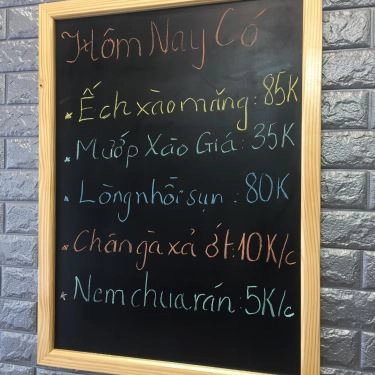 Hôm Nay Có
* Ếch xào măng: 85K
* Mướp Xào Giá: 35K
* Lòng nhồi sụn: 80K
* Chân gà xả ớt: 10K/c
* Nem chua rán: 5K/c